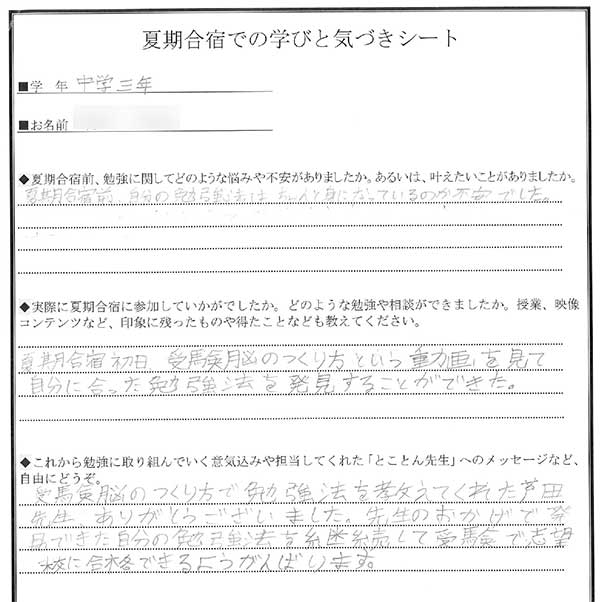 夏期合宿での学びと気づきシート
■学 年 中学三年
■お名前
◆夏期合宿前、勉強に関してどのような悩みや不安がありましたか。あるいは、叶えたいことがありましたか。
夏期合宿前、自分の勉強法はちゃんと身になっているのか不安でした。
◆実際に夏期合宿に参加していかがでしたか。どのような勉強や相談ができましたか。授業、映像
コンテンツなど、印象に残ったものや得たことなども教えてください。
夏期合宿初日 受験脳のつくり方という動画を見て
自分に合った勉強法を発見することができた。
◆これから勉強に取り組んでいく意気込みや担当してくれた「とことん先生」へのメッセージなど、
自由にどうぞ。
受験脳のつくり方で勉強法を教えてくれた芦田
先生、ありがとうございました。先生のおかげで発
見できた自分の勉強法を継続して受験で志望
校に合格できるようがんばります。